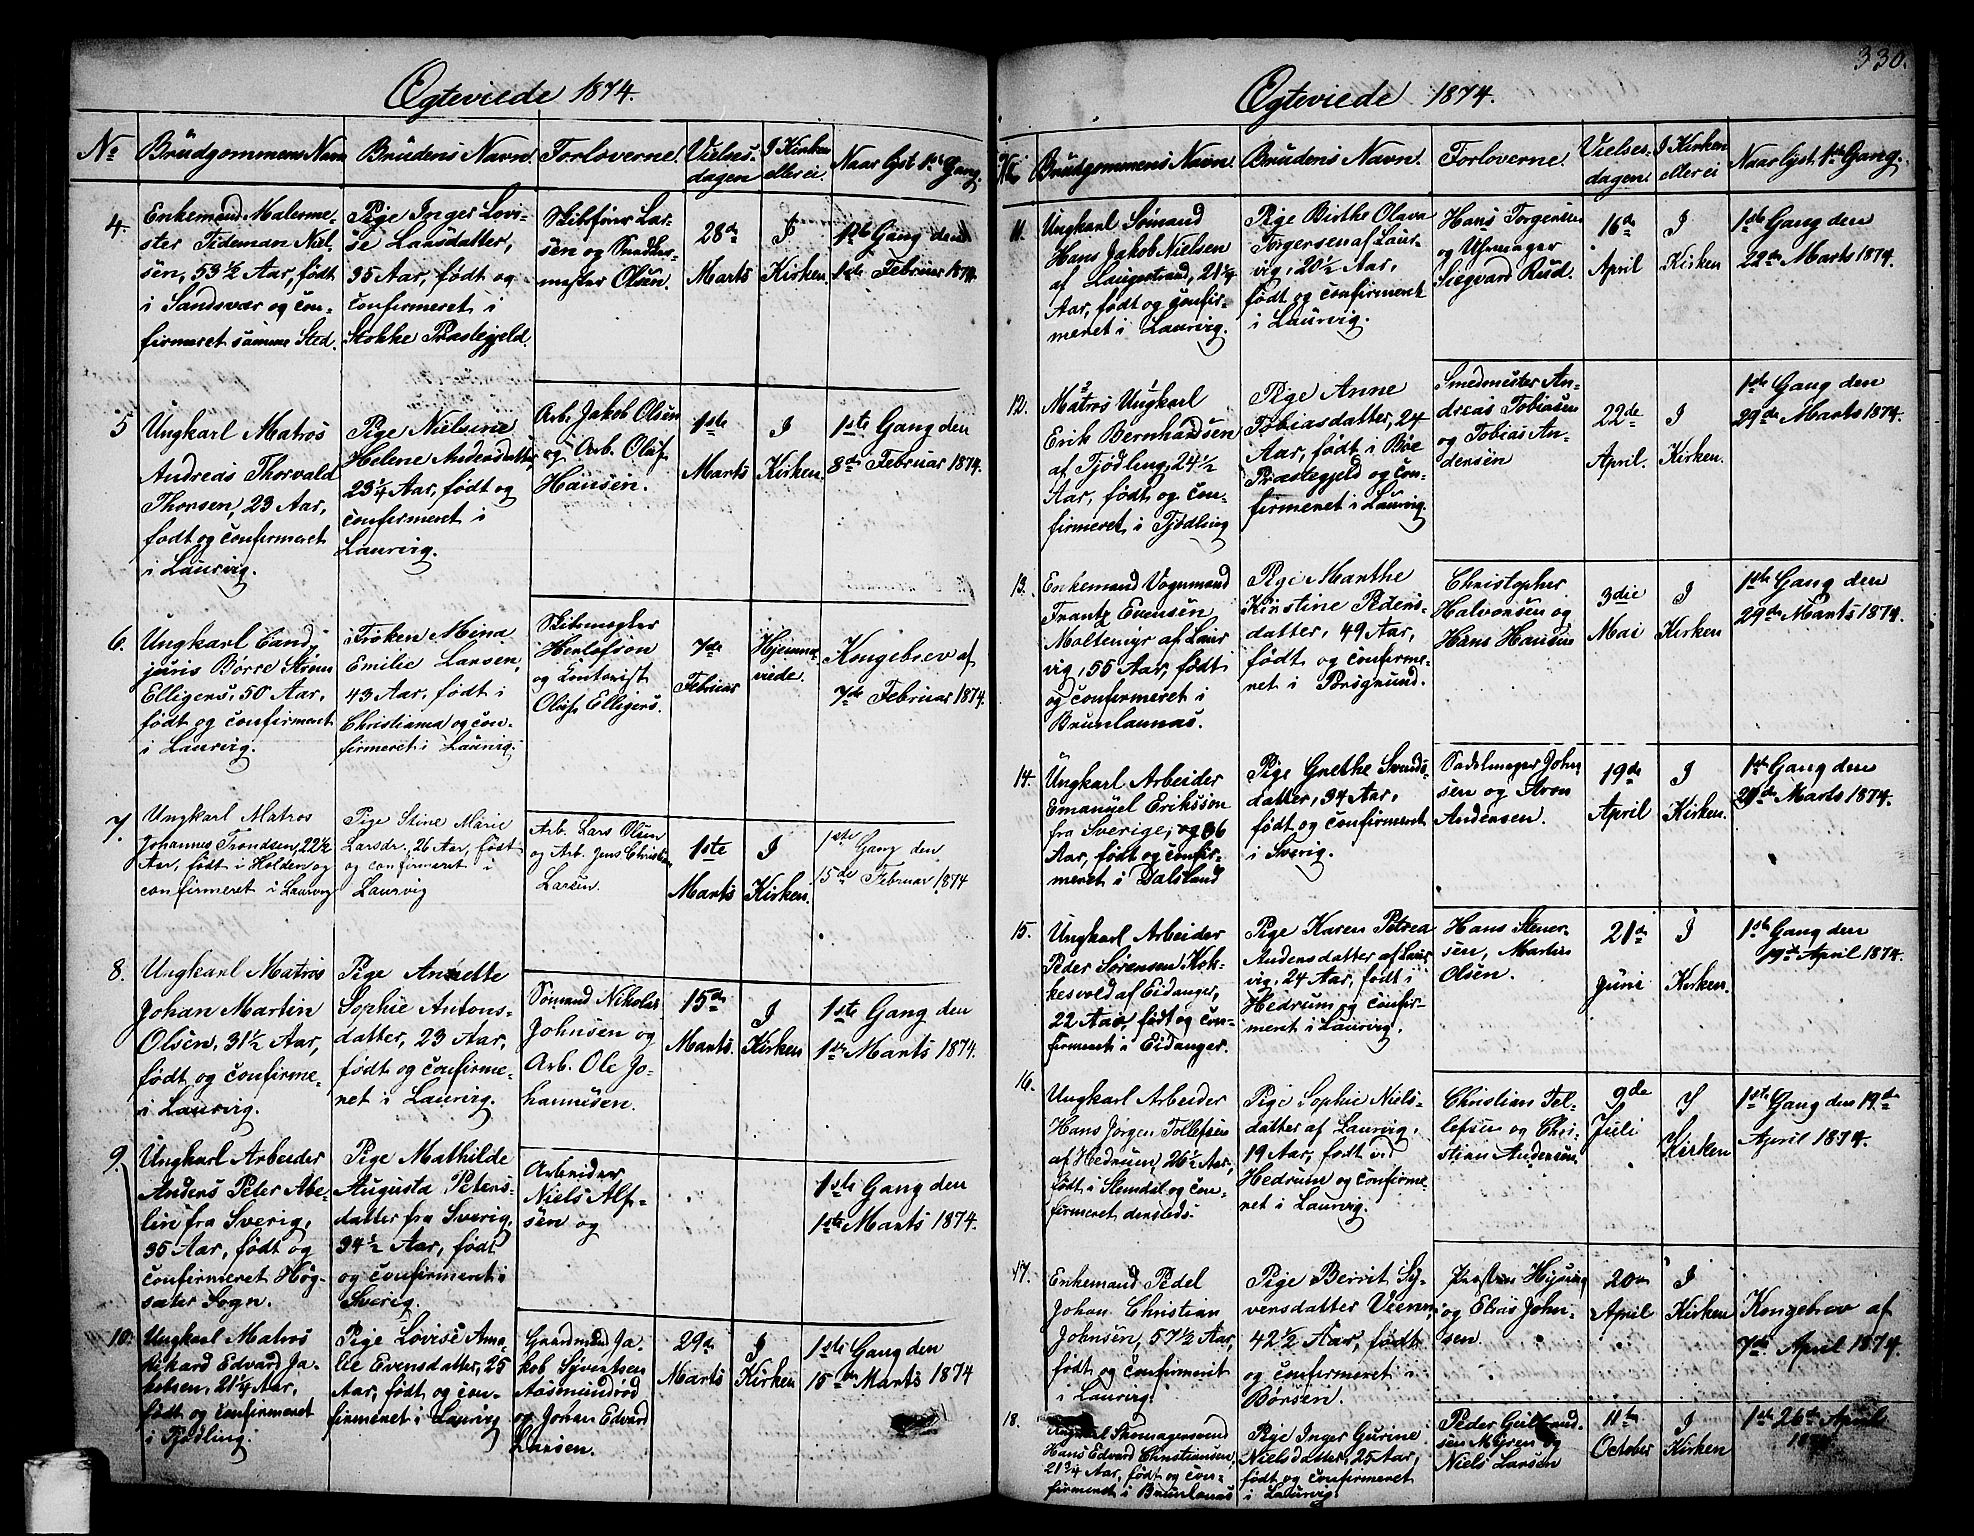 Ægteviede 1874.
No
Brudgommens Navn
Brudens Navn.
Forloverne.
Vielses-
dagen
I Kirken
eller ei.
Naar lyst 1ste Gang.
4.
Enkemand Malerme-
ster Tideman Niel-
sen, 53 1/2 Aar, født
i Sandsvær og con-
firmeret samme Sted.
Pige Inger Lovi-
se Larsdatter,
35 Aar, født og
confirmeret i
Stokke Præstegjeld.
Skibsfører Lar-
sen og Snedker-
mester Olsen.
28de
Marts
I
Kirken.
1ste Gang den
1ste Februar 1874.
5
Ungkarl Matros
Andreas Thorvald
Thorsen, 23 Aar,
født og confirmeret
i Laurvig.
Pige Nielsine
Helene Andersdatter
23 1/4 Aar, født og
confirmeret i
Laurvig.
Arb. Jakob Olsen
og Arb. Oluf
Hansen.
1ste
Marts
I
Kirken.
1ste Gang den
8de Februar 1874.
6.
Ungkarl Cand.
juris Børre Strøm
Elligers, 50 Aar,
født og confirmeret
i Laurvig.
Frøken Mina
Emilie Larsen,
43 Aar, født i
Christiania og con-
firmeret i Laurvig.
Skibsmægler
Henlofson
og Kontorist
Oluf Elligers.
7de
Februar
Hjemme-
viede.
Kongebrev af
7de Februar 1874.
7.
Ungkarl Matros
Johannes Trondsen, 22 1/2
Aar, født i Holden og
confirmeret i Laurvig
Pige Stine Marie
Larsdr., 26 Aar, født
og confirmeret i
Laurvig
Arb. Lars Olsen
og Arb. Jens Christian
Larsen.
1ste
Marts
I
Kirken.
1ste Gang den
15de Februar 1874
8.
Ungkarl Matros
Johan Martin
Olsen, 31 1/2 Aar,
født og confirme-
i Laurvig.
Pige Annette
Sophie Antons-
datter, 23 Aar,
født og confirme-
ret i Laurvig.
Sømand Nikolai
Johnsen og
Arb. Ole Jo-
hannesen.
15de
Marts.
I
Kirken
1ste Gang den
1ste Marts 1874.
9.
Ungkarl Arbeider
Anders Peter Abe-
lin fra Sverig,
35 Aar, født og
confirmeret Høg-
sater Sogn.
Pige Mathilde
Augusta Peters-
datter fra Sverig,
34 1/2 Aar, født
og confirmeret i
Sverig.
Arbeider
Niels Alf-
sen og
1ste Gang den
1ste Marts 1874.
10.
Ungkarl Matros
Rikard Edvard Ja-
kobsen, 21 1/4 Aar,
født og confirmeret
i Tjødling.
Pige Lovise Ama-
lie Evensdatter, 25
Aar, født og con-
firmeret i Laurvig
Gaardmand Ja-
kob Syvertsen
Aasmundrød
og Johan Edvard
Larsen.
29de
Marts
I
Kirken
1ste Gang den
15de Marts 1874
330.
Ægteviede 1874.
No
Brudgommens Navn.
Brudens Navn.
Forloverne.
Vielses-
dagen
I Kirken
eller ei
Naar lyst 1ste Gang.
11.
Ungkarl Sømand
Hans Jakob Nielsen
af Langestrand, 21 1/4
Aar, født og confir-
meret i Laurvig.
Pige Birthe Olava
Torgersen af Laur-
vig, 20 1/2 Aar,
født og confirmeret
i Laurvig.
Hans Torgersen
og Uhrmager
Siegvard Rud.
16de
April
I
Kirken
1ste Gang den
22de Marts 1874.
12.
Matros Ungkarl
Erik Bernhardsen
af Tjødling, 24 1/2
Aar, født og con-
firmeret i Tjødling
Pige Anne
Tobiasdatter, 24
Aar, født i Bøe
Præstegjeld og con-
firmeret i Laurvig.
Smedmester An-
dreas Tobiasen
og Tobias An-
dersen
22de
April.
I
Kirken.
1ste Gang den
29de Marts 1874.
13.
Enkemand Vognmand
Frantz Evensen
Moltemyr af Laur
vig, 55 Aar, født
og confirmeret i
Brunlaunas.
Pige Marthe
Kirstine Peders-
datter, 49 Aar,
født og confirme-
ret i Porsgrund.
Christopher
Halvorsen og
Hans Hansen
3die
Mai
I
Kirken
1ste Gang den
29de Marts 1874.
14.
Ungkarl Arbeider
Emanuel Eriksson
fra Sverige, og 36
Aar, født og confir-
meret i Dalsland
Pige Grethe Svends-
datter, 34 Aar,
født og confirmeret
i Sverig.
Sadelmager John-
sen og Aron
Andersen.
19de
April
I
Kirken.
1ste Gang den
29de Marts 1874.
15.
Ungkarl Arbeider
Peder Sørensen Kok-
kesvold af Eidanger,
22 Aar, født og con-
firmeret i Eidanger.
Pige Karen Petrea
Andersdatter af Laur
vig, 24 Aar, født i
Hedrum og confir-
meret i Laurvig.
Hans Stener-
sen, Martin
Olsen.
21de
Juni
I
Kirken.
1ste Gang den
19de April 1874.
16.
Ungkarl Arbeider
Hans Jørgen Tollefsen
af Hedrum, 26 1/2 Aar,
født i Slemdal og con-
firmeret dersteds.
Pige Sophie Niels-
datter af Laurvig,
19 Aar, født ved
Hedrum og confirme-
ret i Laurvig.
Christian Tol-
lefsen og Chri-
stian Andersen.
9de
Juli
I
Kirken
1ste Gang den 19de
April 1874.
17.
Enkemand Pedel
Johan Christian
Johnsen, 57 1/2 Aar,
født og confirmeret
i Laurvig.
Pige Berrit Sy-
versdatter Vienn,
42 1/2 Aar, født
og confirmeret i
Børsen.
Provsten Hysing
og Elias John-
sen.
20de
April
I
Kirken
Kongebrev af
7de April 1874.
18.
Ungkarl Skomagersvend
Hans Edvard Christiansen,
21 3/4 Aar, født og con-
firmeret i Brunlanas
Pige Inger Gurine
Nielsdatter, 25 Aar,
født og confirmeret
i Laurvig.
Peder Gulbrand-
sen Myren og
Niels Larsen
11te
October
I
Kirken
1ste 26de April
1874.